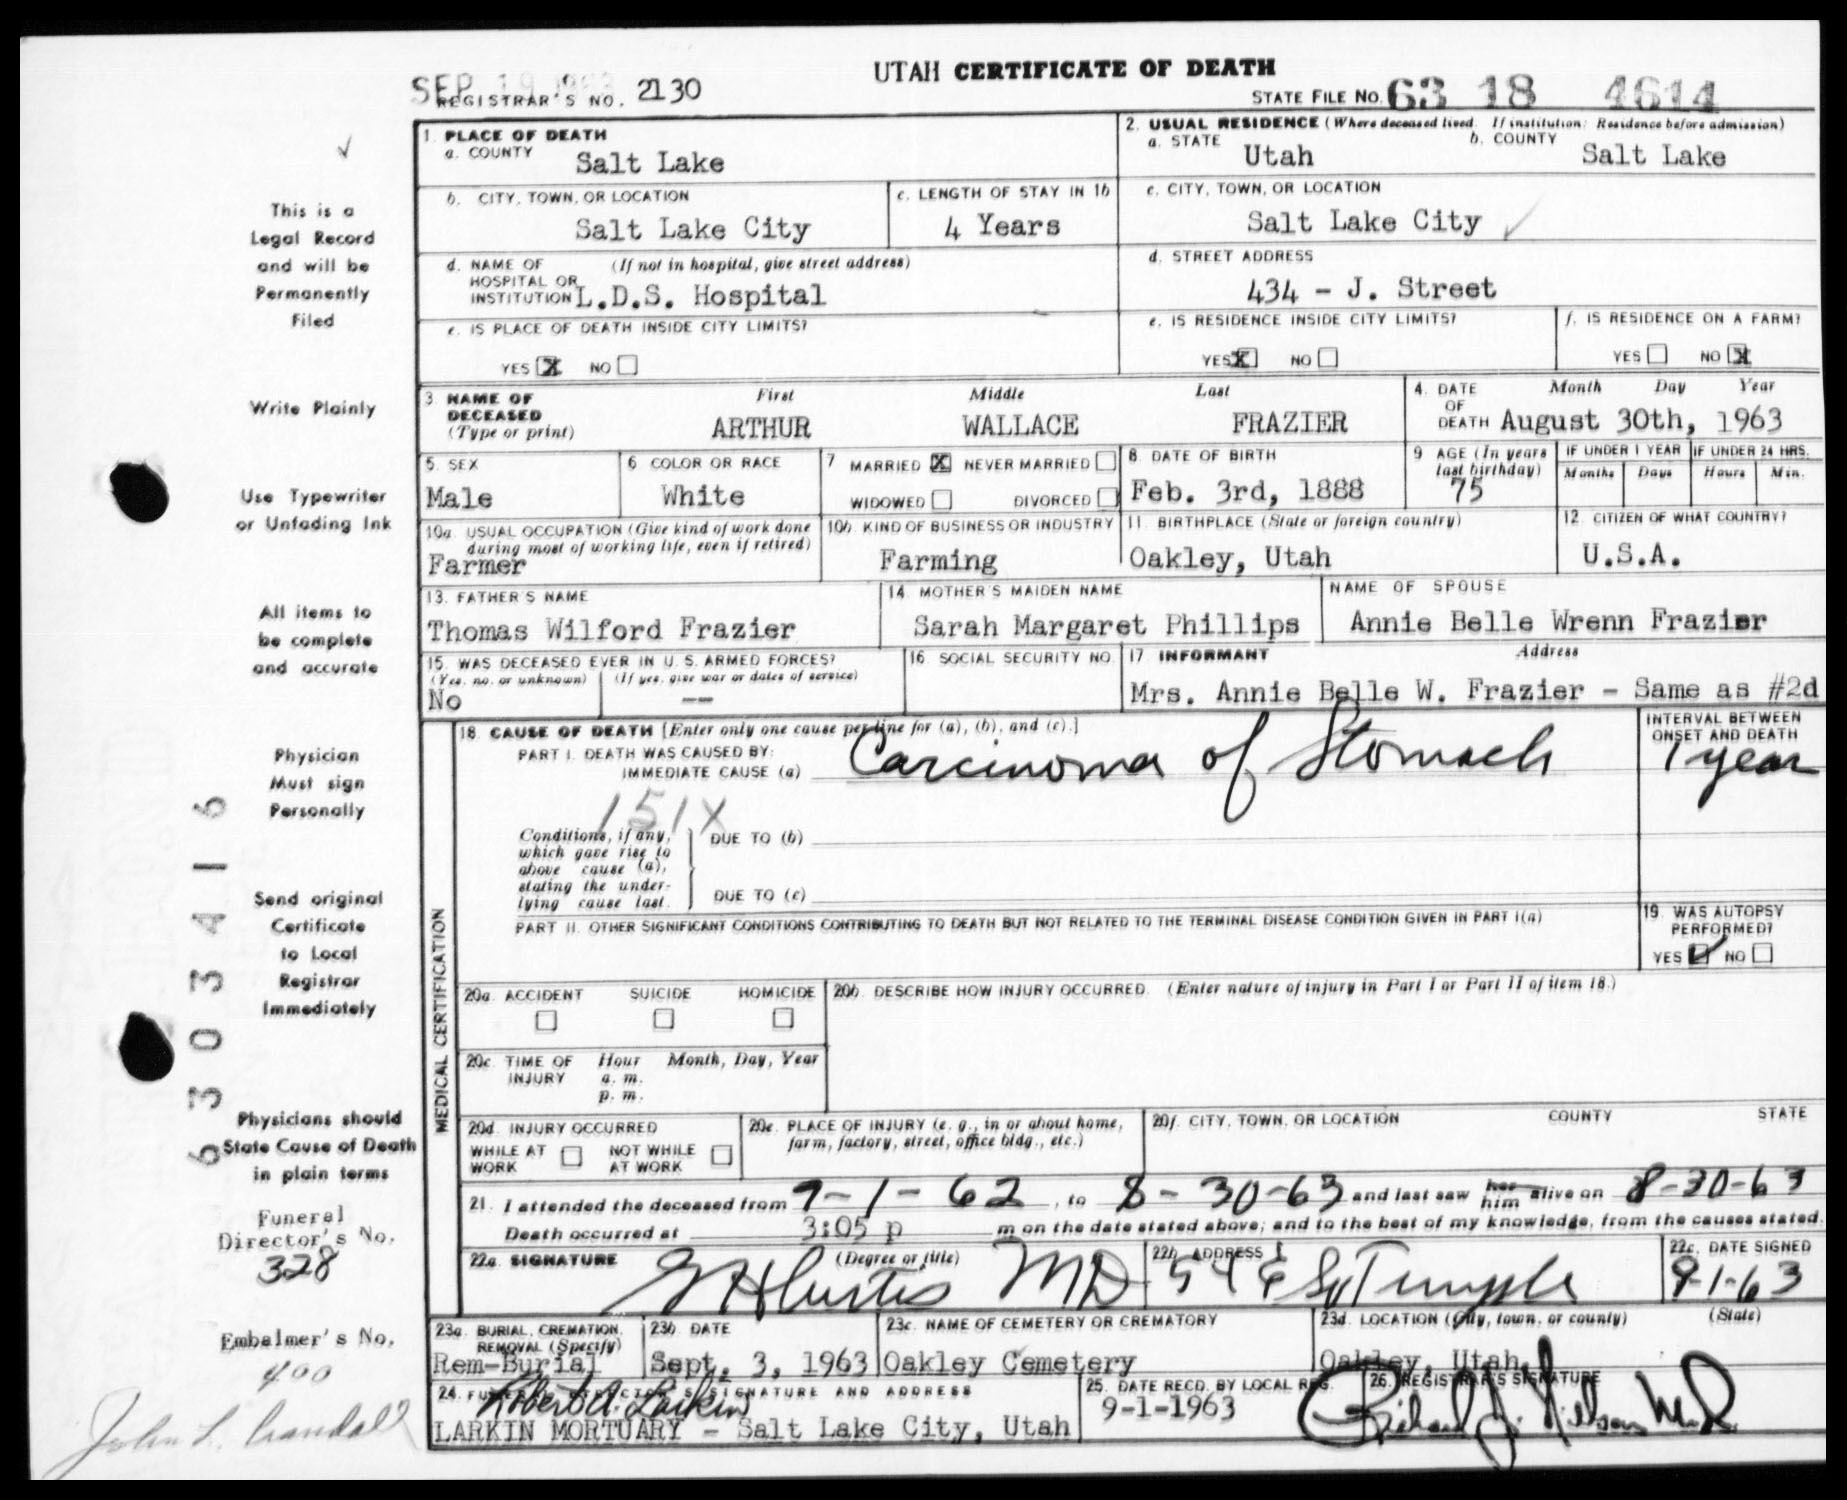 UTAH CERTIFICATE OF DEATH
SEP 19 1963
REGISTRAR'S NO. 2130
STATE FILE NO. 63 18 4614
This is a
Legal Record
and will be
Permanently
Filed
Write Plainly
Use Typewriter
or Unfading Ink
All items to
be complete
and accurate
Physician
Must sign
Personally
Send original
Certificate
to Local
Registrar
Immediately
Physicians should
State Cause of Death
in plain terms
Funeral
Director's No.
328
Embalmer's No.
400
John L. Crandall
6303416
1. PLACE OF DEATH
a. COUNTY Salt Lake
b. CITY, TOWN, OR LOCATION
Salt Lake City
c. LENGTH OF STAY IN 1b
4 Years
d. NAME OF (If not in hospital, give street address)
HOSPITAL OR
INSTITUTION L.D.S. Hospital
e. IS PLACE OF DEATH INSIDE CITY LIMITS?
YES X NO
2. USUAL RESIDENCE (Where deceased lived. If institution: Residence before admission)
a. STATE Utah b. COUNTY Salt Lake
c. CITY, TOWN, OR LOCATION
Salt Lake City
d. STREET ADDRESS
434 - J. Street
e. IS RESIDENCE INSIDE CITY LIMITS?
YES X NO
f. IS RESIDENCE ON A FARM?
YES NO X
3. NAME OF DECEASED (Type or print)
First Middle Last
ARTHUR WALLACE FRAZIER
4. DATE OF DEATH Month Day Year
August 30th, 1963
5. SEX
Male
6 COLOR OR RACE
White
7 MARRIED X NEVER MARRIED
WIDOWED DIVORCED
8. DATE OF BIRTH
Feb. 3rd, 1888
9 AGE (In years last birthday)
75
IF UNDER 1 YEAR IF UNDER 24 HRS.
Months Days Hours Min.
10a. USUAL OCCUPATION (Give kind of work done
during most of working life, even if retired)
Farmer
10b. KIND OF BUSINESS OR INDUSTRY
Farming
11. BIRTHPLACE (State or foreign country)
Oakley, Utah
12. CITIZEN OF WHAT COUNTRY?
U.S.A.
13. FATHER'S NAME
Thomas Wilford Frazier
14. MOTHER'S MAIDEN NAME
Sarah Margaret Phillips
NAME OF SPOUSE
Annie Belle Wrenn Frazier
15. WAS DECEASED EVER IN U. S. ARMED FORCES?
(Yes, no, or unknown) (If yes, give war or dates of service)
No --
16. SOCIAL SECURITY NO.
17. INFORMANT Address
Mrs. Annie Belle W. Frazier - Same as #2d
MEDICAL CERTIFICATION
18. CAUSE OF DEATH [Enter only one cause per line for (a), (b), and (c).]
PART I. DEATH WAS CAUSED BY:
IMMEDIATE CAUSE (a) Carcinoma of Stomach
INTERVAL BETWEEN
ONSET AND DEATH
1 year
151X
Conditions, if any,
which gave rise to
above cause (a),
stating the under-
lying cause last.
DUE TO (b)
DUE TO (c)
PART II. OTHER SIGNIFICANT CONDITIONS CONTRIBUTING TO DEATH BUT NOT RELATED TO THE TERMINAL DISEASE CONDITION GIVEN IN PART I(a)
19. WAS AUTOPSY
PERFORMED?
YES ✓ NO
20a. ACCIDENT SUICIDE HOMICIDE
20b. DESCRIBE HOW INJURY OCCURRED. (Enter nature of injury in Part I or Part II of item 18.)
20c. TIME OF INJURY Hour Month, Day, Year
a. m.
p. m.
20d. INJURY OCCURRED
WHILE AT WORK NOT WHILE AT WORK
20e. PLACE OF INJURY (e. g., in or about home,
farm, factory, street, office bldg., etc.)
20f. CITY, TOWN, OR LOCATION COUNTY STATE
21. I attended the deceased from 9-1-62, to 8-30-63 and last saw her him alive on 8-30-63
Death occurred at 3:05 p m on the date stated above; and to the best of my knowledge, from the causes stated.
22a. SIGNATURE (Degree or title)
G H Curtis MD
22b. ADDRESS
54 E So Temple
22c. DATE SIGNED
9-1-63
23a. BURIAL, CREMATION,
REMOVAL (Specify)
Rem-Burial
23b. DATE
Sept. 3, 1963
23c. NAME OF CEMETERY OR CREMATORY
Oakley Cemetery
23d. LOCATION (City, town, or county) (State)
Oakley, Utah
24. FUNERAL DIRECTOR'S SIGNATURE AND ADDRESS
Robert A. Larkin
LARKIN MORTUARY - Salt Lake City, Utah
25. DATE RECD. BY LOCAL REG.
9-1-1963
26. REGISTRAR'S SIGNATURE
Richard J. Nelson M.D.